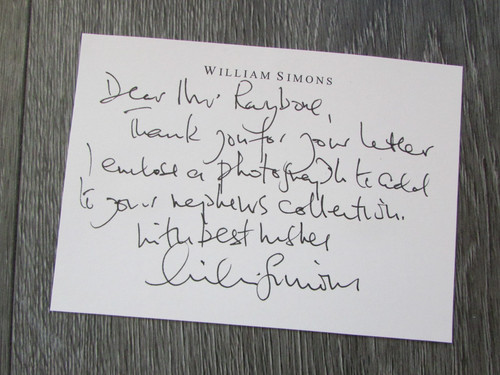 WILLIAM SIMONS
Dear Mr. Raybone,
Thank you for your letter
I enclose a photograph to add
to your nephews collection.
With best wishes
William Simons